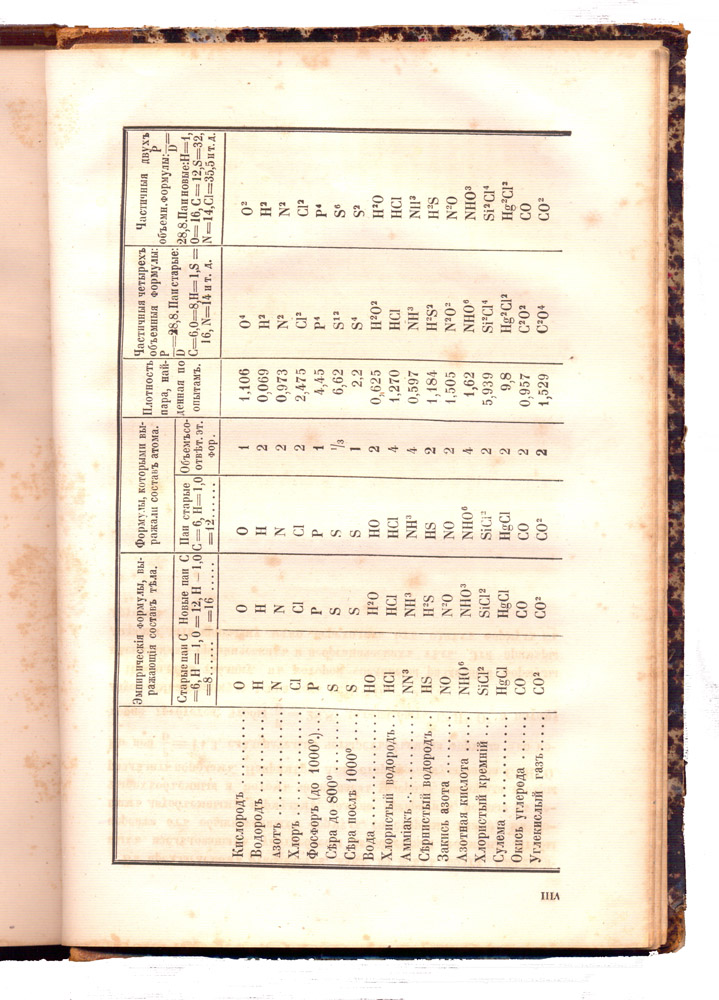 Эмпирическія формулы, вы-
ражающія составъ тѣла.
Формулы, которыми вы-
ражали составъ атома.
Плотность
пара, най-
денная по
опытамъ.
Частичныя четырехъ
объемныя формулы:
P
D=28,8. Паи старые:
C=6,O=8,H=1,S=
16, N=14 и т. д.
Частичныя двухъ
объемн. формулы: P
D=
28,8. Паи новые: H=1,
O=16, C=12, S=32,
N=14, Cl=35,5 и т. д.
Старые паи C
=6, H=1, O
=8......
Новые паи C
=12, H-1, O
=16 .....
Паи старые
C=6, H=1,0
=12......
Объемъ со-
отвѣт. эт.
фор.
Кислородъ O O O 1 1.106 O⁴ O²
Водородъ H H H 2 0,069 H² H²
Азотъ N N N 2 0,973 N² N²
Хлоръ Cl Cl Cl 2 2,475 Cl² Cl²
Фосфоръ (до 1000⁰) P P P 1 4,45 P⁴ P⁴
Сѣра до 800⁰ S S S 1/3 6,62 S¹² S⁶
Сѣра послѣ 1000⁰ S S S 1 2,2 S⁴ S²
Вода HO H²O HO 2 0,625 H²O² H²O
Хлористый водородъ HCl HCl HCl 4 1,270 HCl HCl
Амміакъ NN³ NH³ NH³ 4 0,597 NH³ NH³
Сѣрнистый водородъ HS H²S HS 2 1,184 H²S² H²S
Закись азота NO N²O NO 2 1,505 N²O² N²O
Азотная кислота NHO⁶ NHO³ NHO⁶ 4 1,62 NHO⁶ NHO³
Хлористый кремній SiCl² SiCl² SiCl² 2 5,939 Si²Cl⁴ Si²Cl⁴
Сулема HgCl HgCl HgCl 2 9,8 Hg²Cl² Hg²Cl²
Окись углерода CO CO CO 2 0,957 C²O² CO
Углекислый газъ CO² CO² CO² 2 1,529 C²O⁴ CO²
VIII